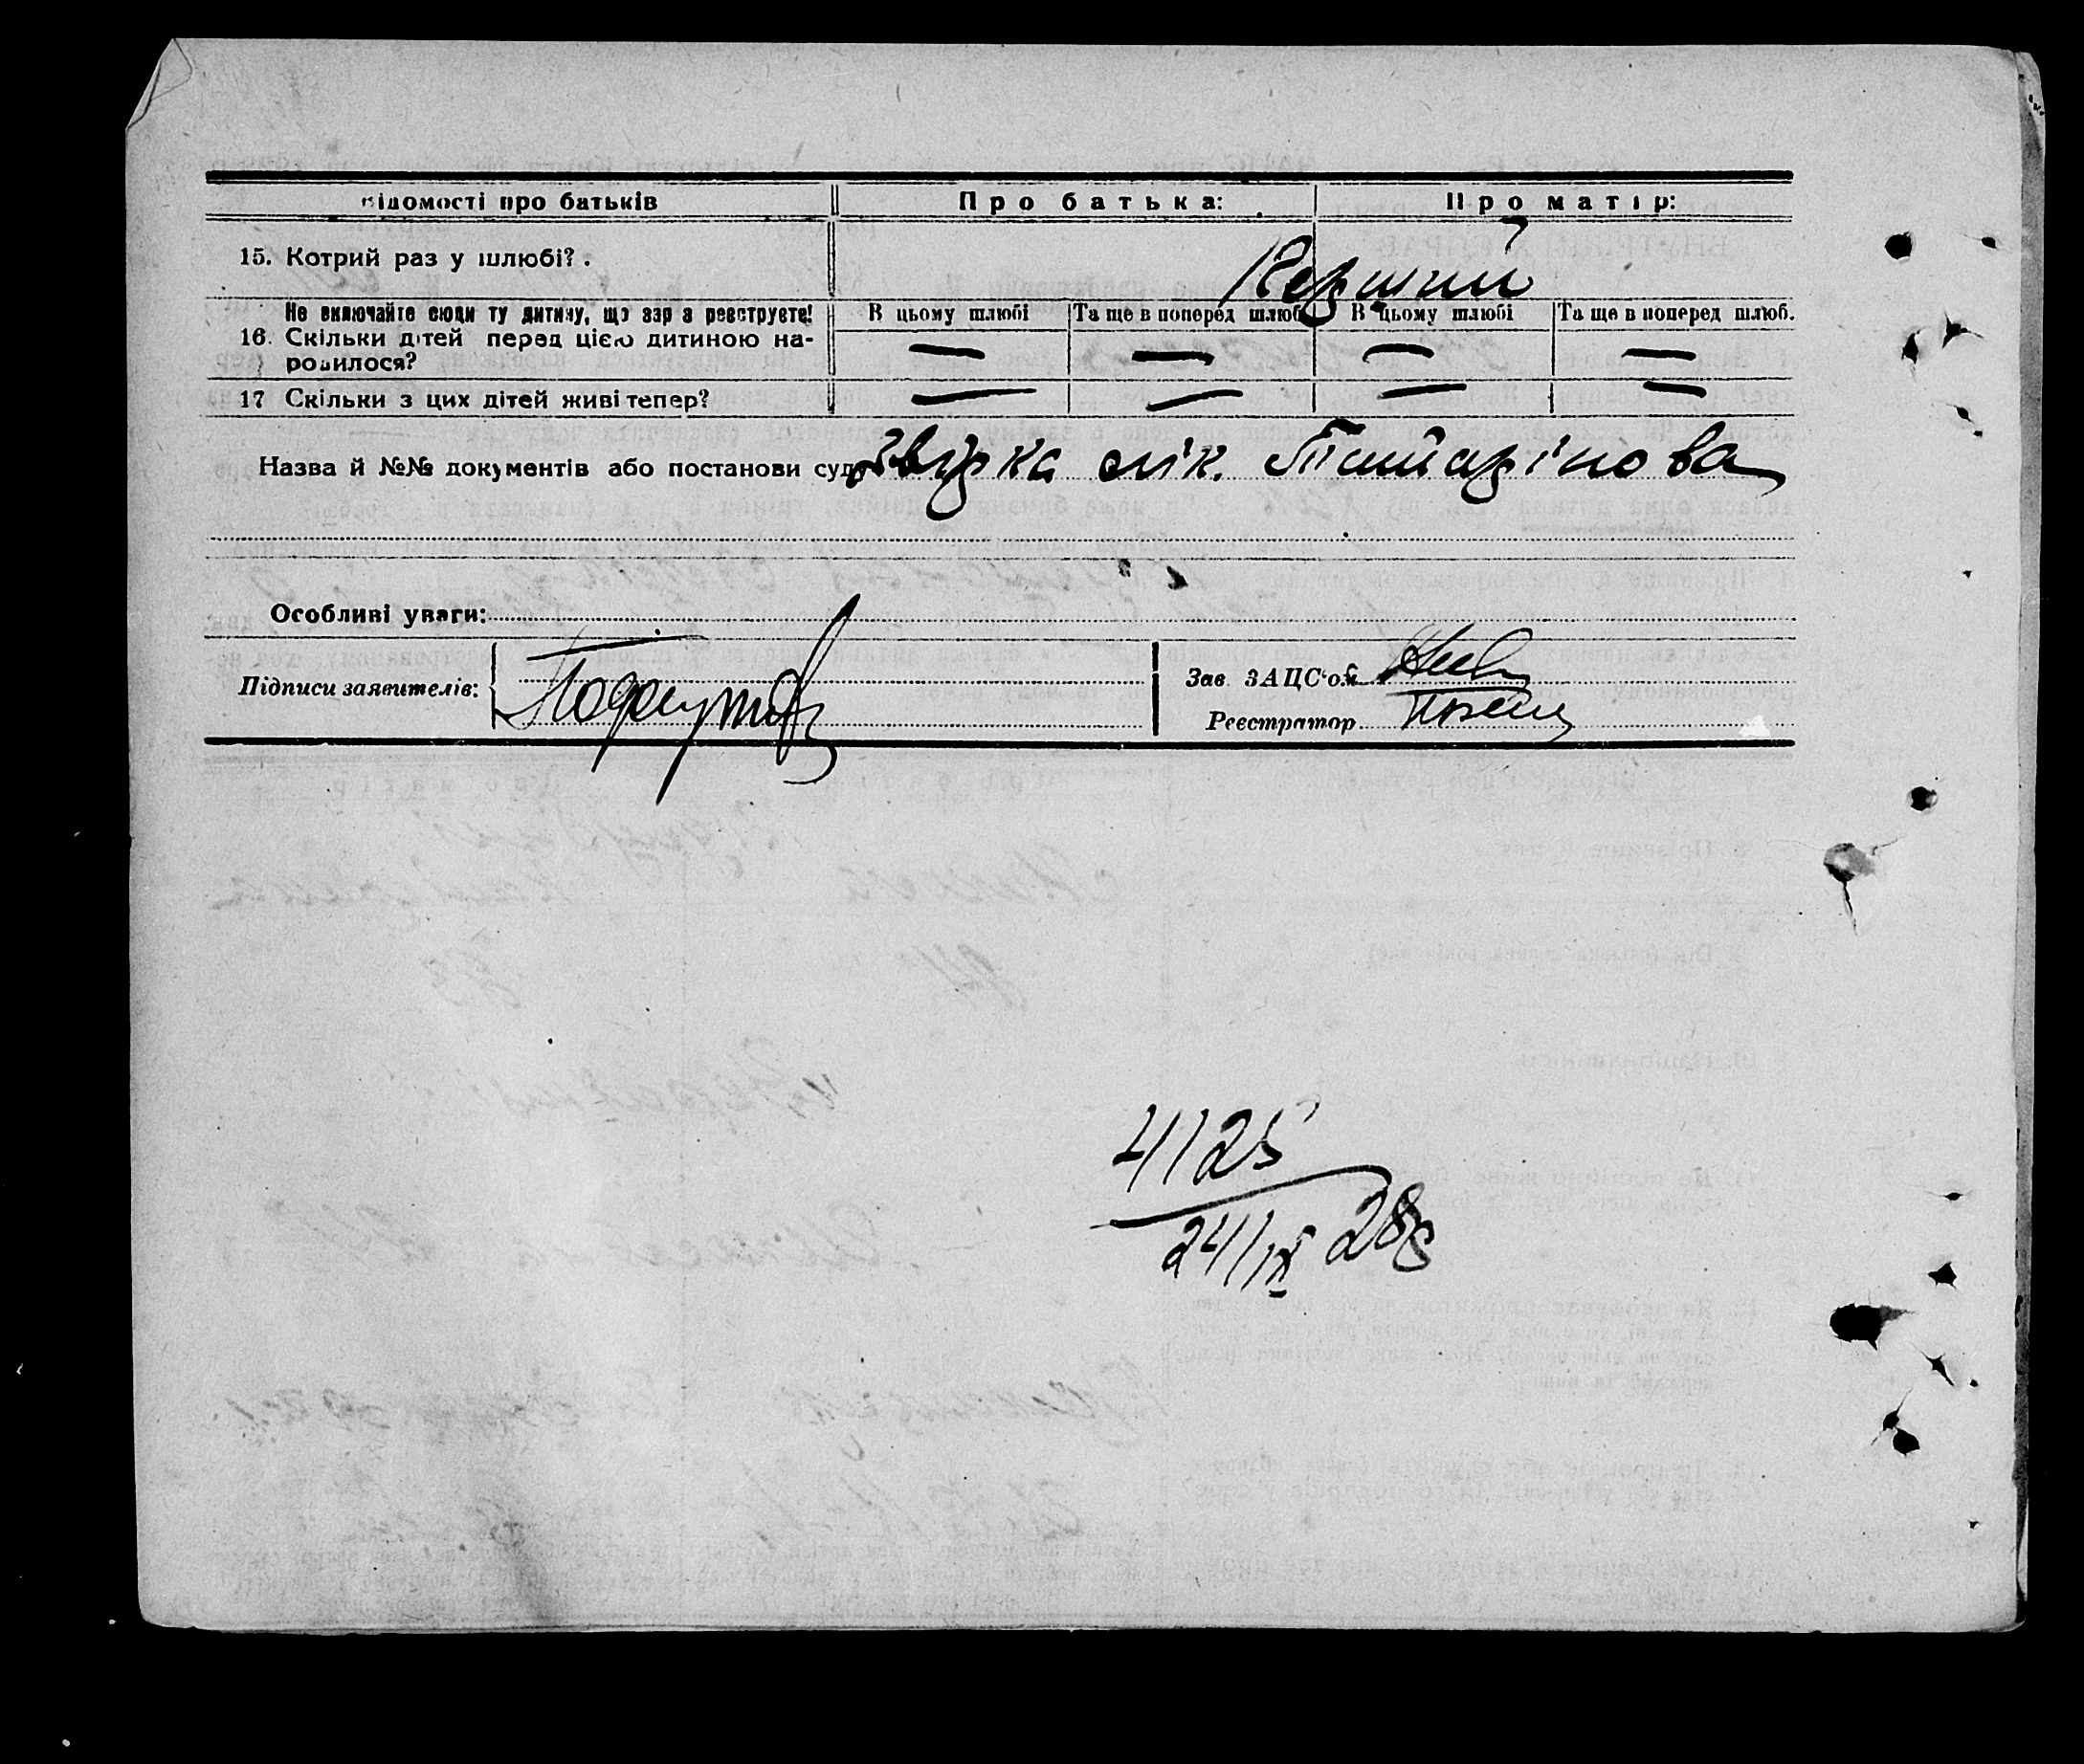 відомості про батьків Про батька: Про матір:
15. Котрий раз у шлюбі?. Перший
Не включайте сюди ту дитину, що зараз реєструєте! В цьому шлюбі Та ще в поперед шлюб В цьому шлюбі Та ще в поперед шлюб.
16. Скільки дітей перед цією дитиною на- — — — —
родилося?
17 Скільки з цих дітей живі тепер? — — — —
Назва й №№ документів або постанови суду лік.
Особливі уваги:
Підписи заявителів: Зав. ЗАЦС'ом
Реєстратор
4125
24/IX 28